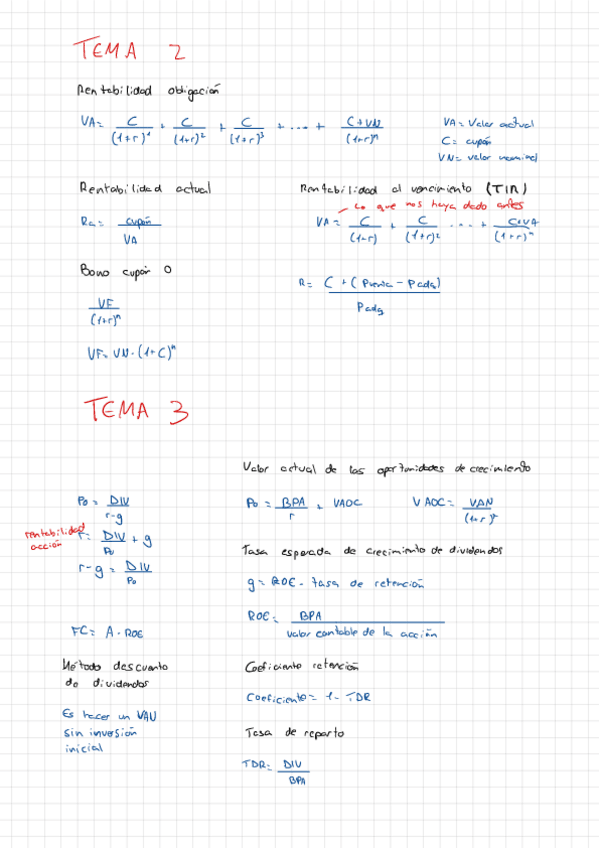 TEMA 2
Rentabilidad obligación
VA= C/(1+r)¹ + C/(1+r)² + C/(1+r)³ + ... + C+VN/(1+r)ⁿ
VA= Valor actual
C= cupón
VN= valor nominal
Rentabilidad actual
Ra= cupón/VA
Rentabilidad al vencimiento (TIR)
Lo que nos haya dado antes
VA= C/(1-r) + C/(1+r)² ... + C+VA/(1+r)ⁿ
Bono cupón 0
VF/(1+r)ⁿ
VF= VN·(1+C)ⁿ
R= C+(Pventa - Padq)/Padq
TEMA 3
Valor actual de las oportunidades de crecimiento
Po= DIV/r-g
rentabilidad acción
r= DIV/Po + g
r-g = DIV/Po
Po= BPA/r + VAOC
VAOC= VAN/(1+r)ⁿ
Tasa esperada de crecimiento de dividendos
g= ROE · tasa de retención
ROE= BPA/valor contable de la acción
FC= A·ROE
Método descuento
de dividendos
Es hacer un VAN
sin inversión
inicial
Coeficiente retención
Coeficiente= 1- TDR
Tasa de reparto
TDR= DIV/BPA